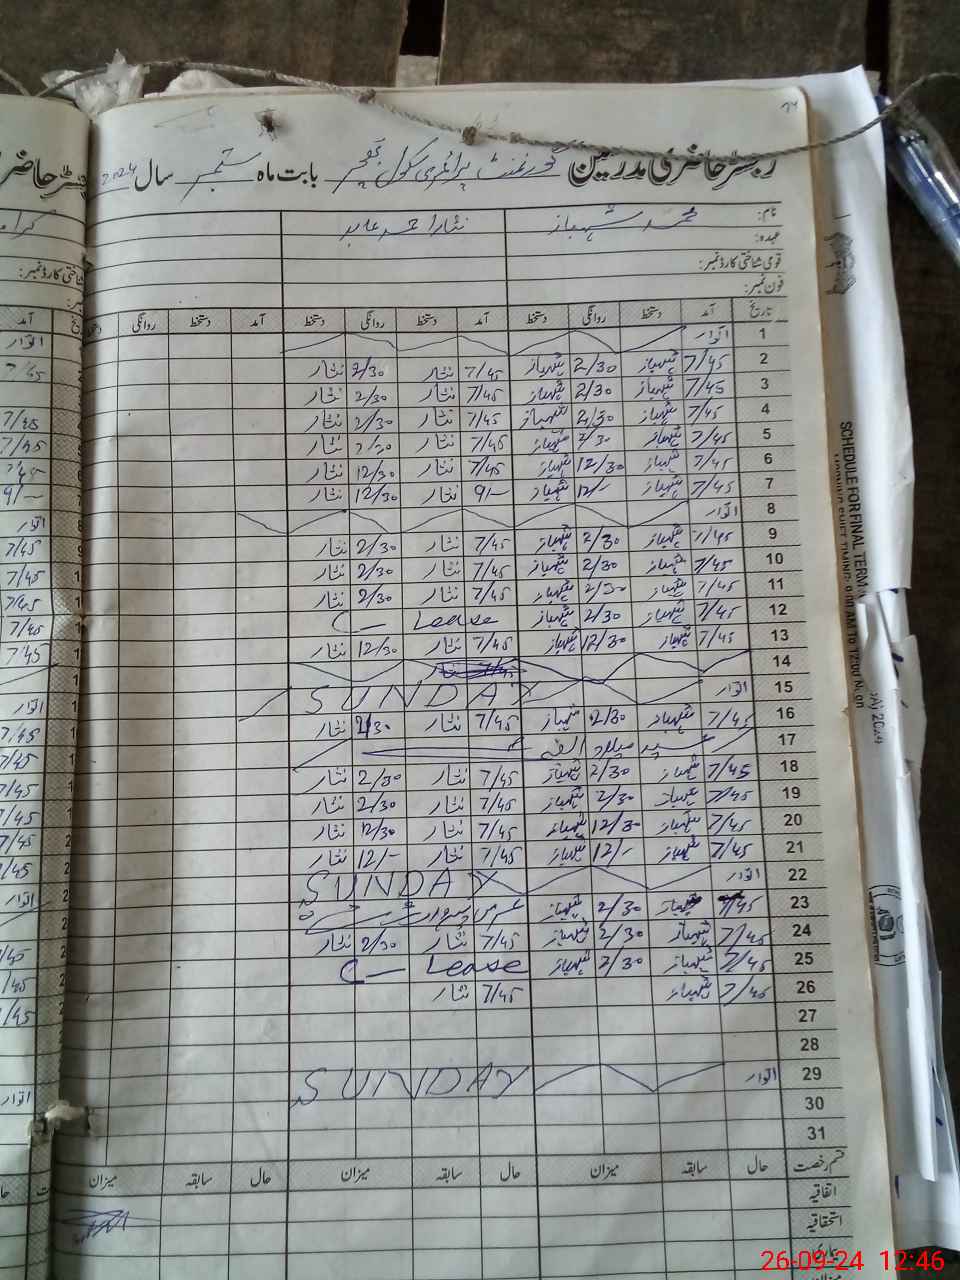 رجسٹر حاضری مدرسین گورنمنٹ پرائمری سکول بابت ماہ ستمبر سال 2024
نام: محمد شہباز نثار احمد عابد
عہدہ:
قومی شناختی کارڈ نمبر:
فون نمبر:
تاریخ آمد دستخط روانگی دستخط آمد دستخط روانگی دستخط آمد دستخط روانگی
1 اتوار
2 7/45 شہباز 2/30 شہباز 7/45 نثار 2/30 نثار
3 7/45 شہباز 2/30 شہباز 7/45 نثار 2/30 نثار
4 7/45 شہباز 2/30 شہباز 7/45 نثار 2/30 نثار
5 7/45 شہباز 2/30 شہباز 7/45 نثار 2/30 نثار
6 7/45 شہباز 12/30 شہباز 7/45 نثار 12/30 نثار
7 7/45 شہباز 12/- شہباز 9/- نثار 12/30 نثار
8 اتوار
9 7/45 شہباز 2/30 شہباز 7/45 نثار 2/30 نثار
10 7/45 شہباز 2/30 شہباز 7/45 نثار 2/30 نثار
11 7/45 شہباز 2/30 شہباز 7/45 نثار 2/30 نثار
12 7/45 شہباز 2/30 شہباز C - Lease
13 7/45 شہباز 12/30 شہباز 7/45 نثار 12/30 نثار
14
15 اتوار SUNDAY
16 7/45 شہباز 2/30 شہباز 7/45 نثار 2/30 نثار
17 عید میلاد النبی
18 7/45 شہباز 2/30 شہباز 7/45 نثار 2/30 نثار
19 7/45 شہباز 2/30 شہباز 7/45 نثار 2/30 نثار
20 7/45 شہباز 12/30 شہباز 7/45 نثار 12/30 نثار
21 7/45 شہباز 12/- شہباز 7/45 نثار 12/- نثار
22 اتوار SUNDAY
23 7/45 شہباز 2/30 شہباز
24 7/45 شہباز 2/30 شہباز 7/45 نثار 2/30 نثار
25 7/45 شہباز 2/30 شہباز C - Lease
26 7/45 شہباز 7/45 نثار
27
28
29 اتوار SUNDAY
30
31
قسم رخصت حال سابقہ میزان حال سابقہ میزان حال سابقہ میزان
اتفاقیہ
استحقاقیہ
بیماری
میزان
SCHEDULE FOR FINAL TERM
9:00 AM TO 12:00 Noon
26-09-24 12:46